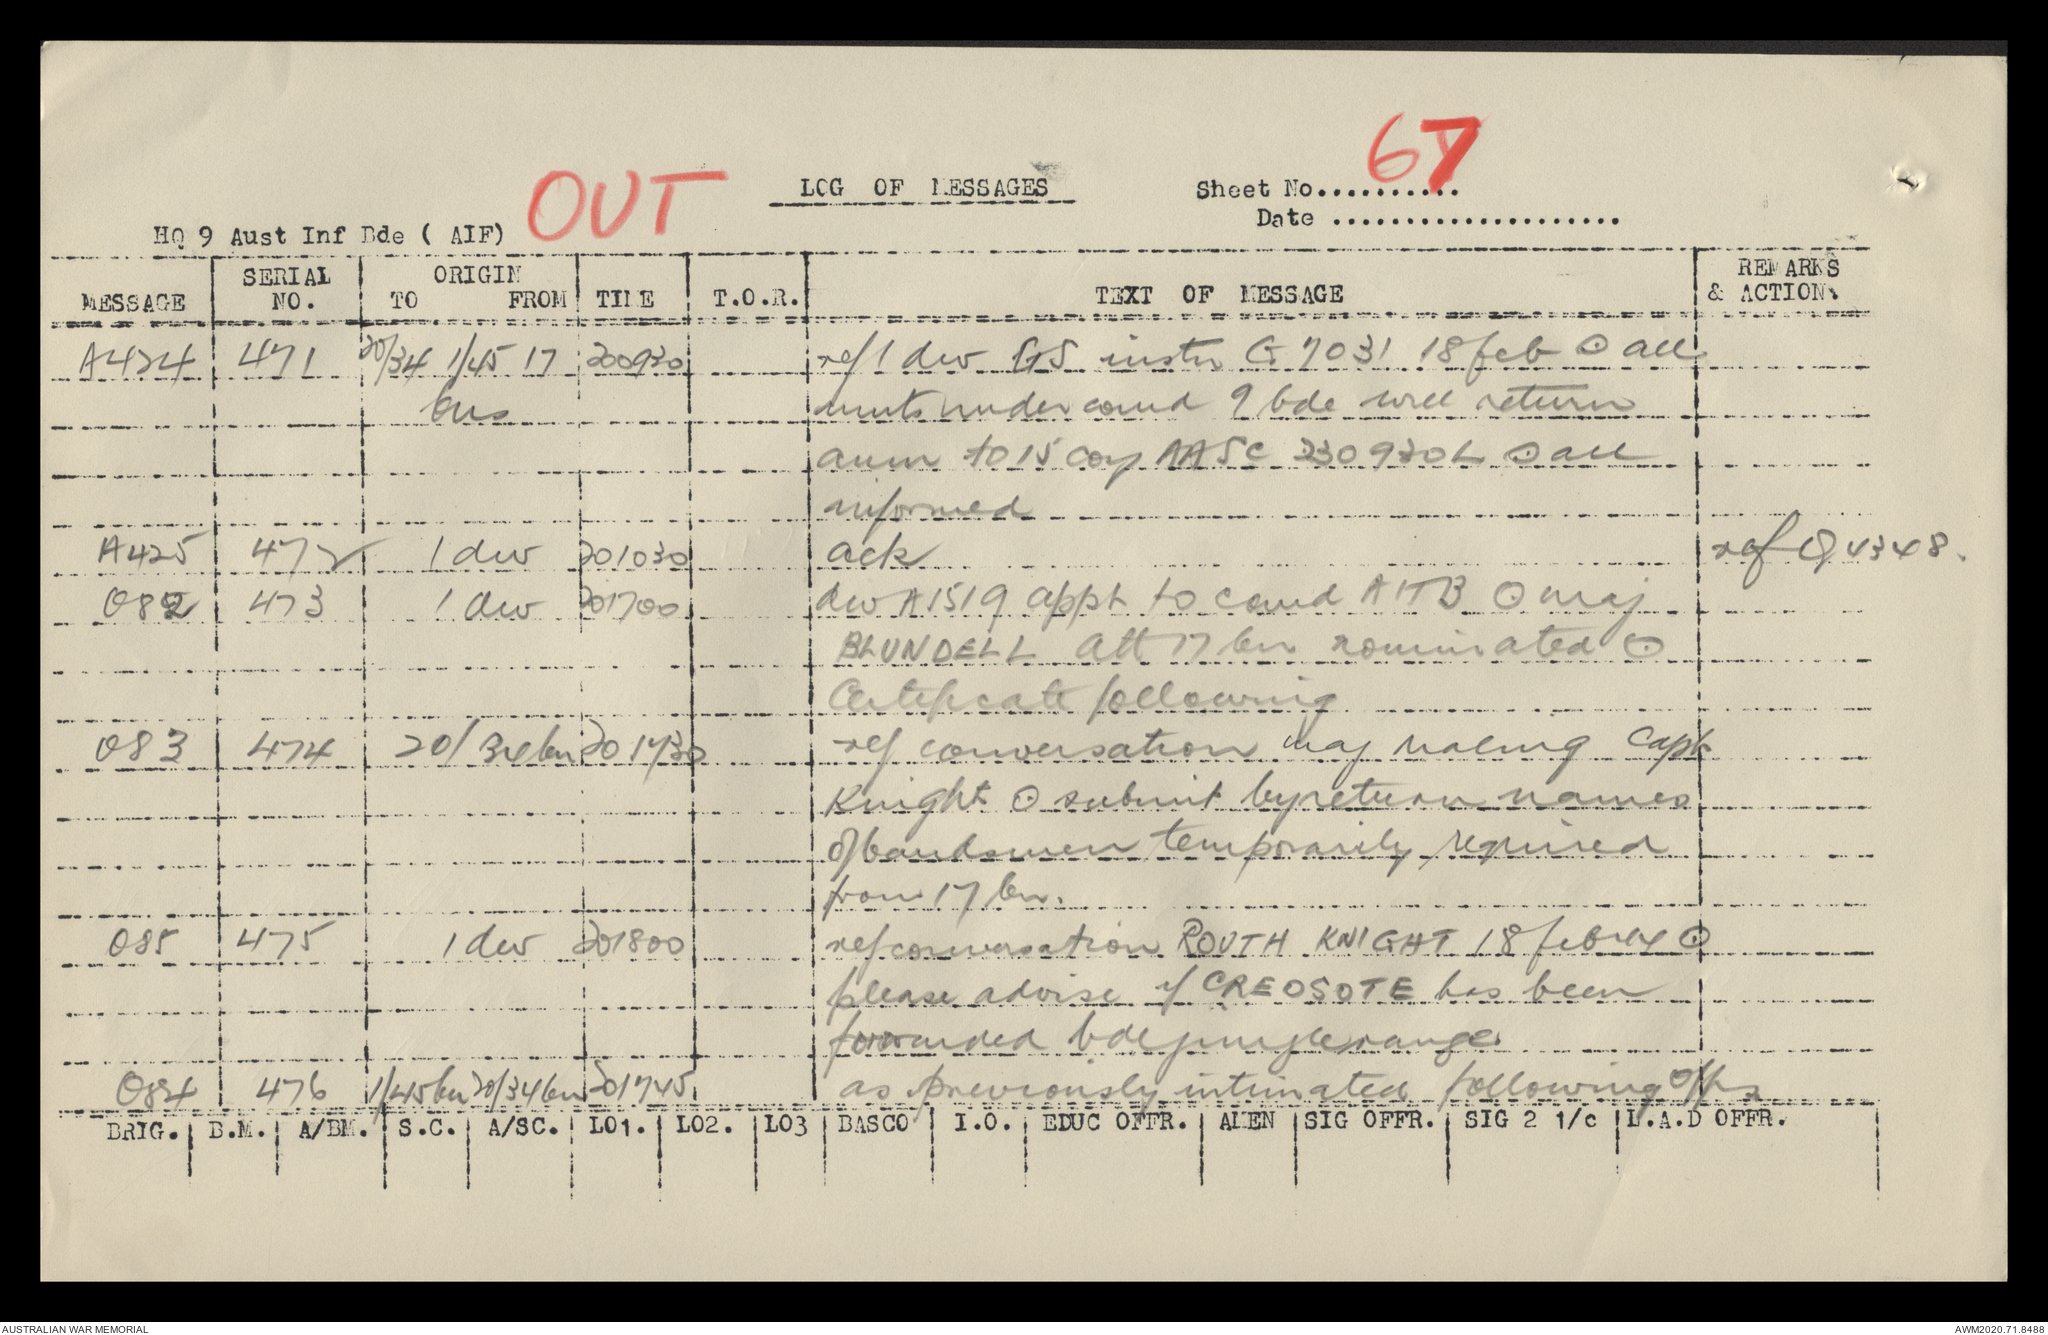 67
OUT
LOG OF MESSAGES
Sheet No..........
Date .....................
HQ 9 Aust Inf Bde ( AIF)
MESSAGE SERIAL NO. ORIGIN TO FROM TIME T.O.R. TEXT OF MESSAGE REMARKS & ACTION.
A424 471 20/34 1/45 17 200930 ref 1 div GS instn G7031 18 feb ⊙ all
bns units under comd 9 bde will return
amm to 15 coy AASC 230930L ⊙ all
informed
A425 472 1 div 201030 ack ref Q4348.
O82 473 1 div 201700 div A1519 appt to comd AITB ⊙ maj
BLUNDELL att 17 bn nominated ⊙
Certificate following
O83 474 20/34 bn 201730 ref conversation maj Capt
Knight ⊙ submit by return names
of bandsmen temporarily required
from 17 bn.
O85 475 1 div 201800 ref conversation ROUTH KNIGHT 18 feb ⊙
please advise if CREOSOTE has been
forwarded bde jungle range
O84 476 1/45 bn 20/34 bn 201745 as previously intimated following offrs
BRIG. B.M. A/BM. S.C. A/SC. LO1. LO2. LO3 BASCO I.O. EDUC OFFR. AMEN SIG OFFR. SIG 2 1/c L.A.D OFFR.
AUSTRALIAN WAR MEMORIAL
AWM2020.71.8488